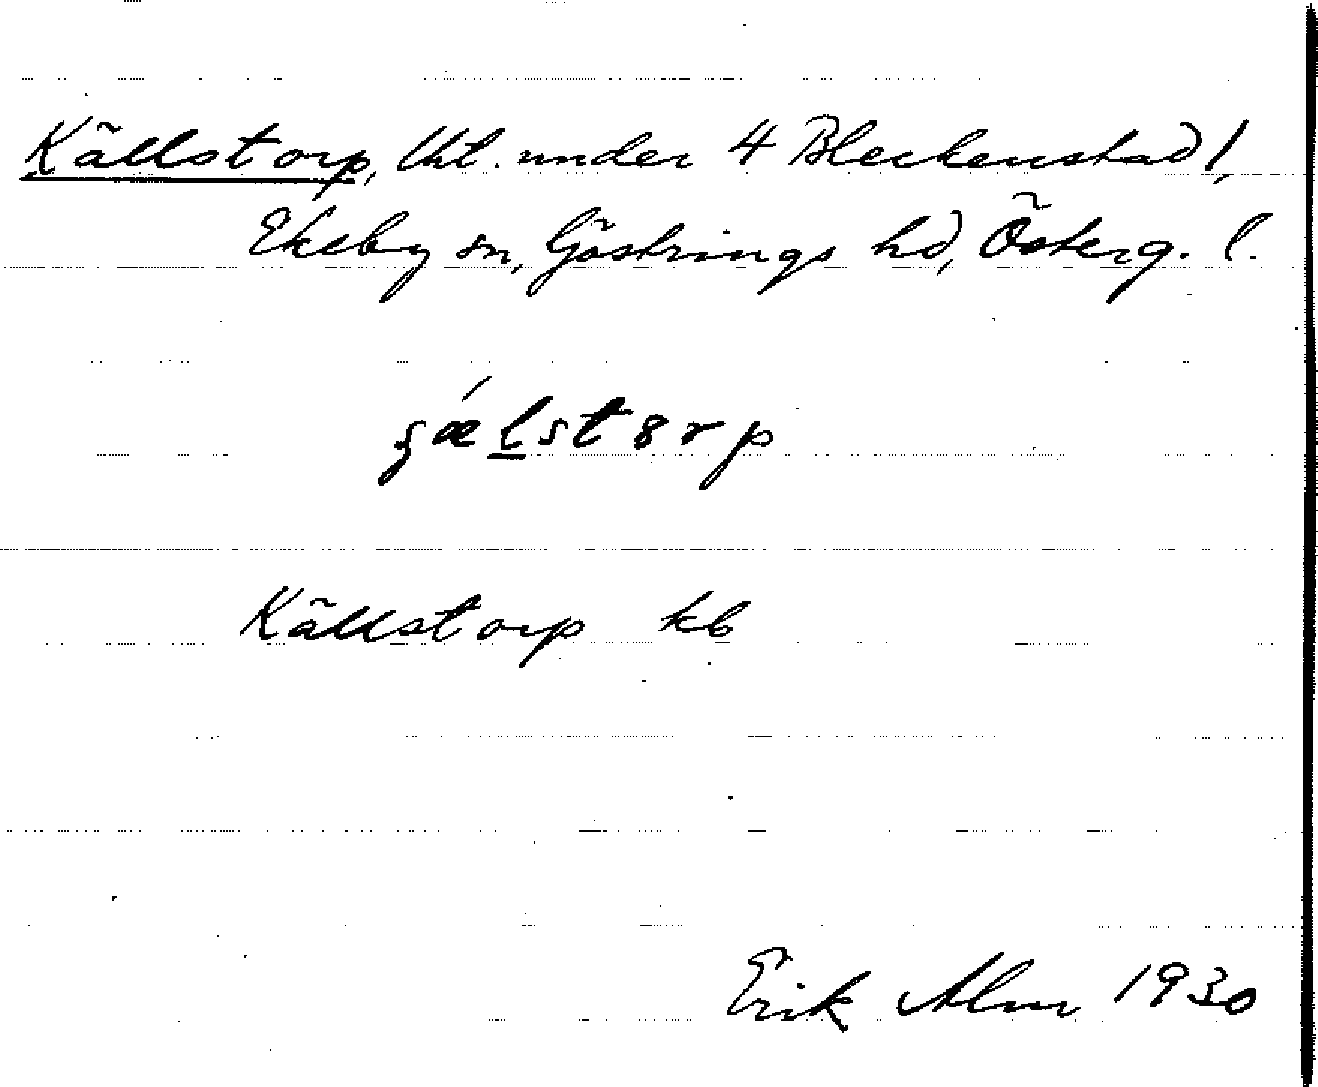 Källstorp, lht. under 4 Bleckenstad!,
Ekeby sn, Göstrings hd, Österg. l.
ʂǽlstɞrp
Källstorp kb
Erik Alm 1930